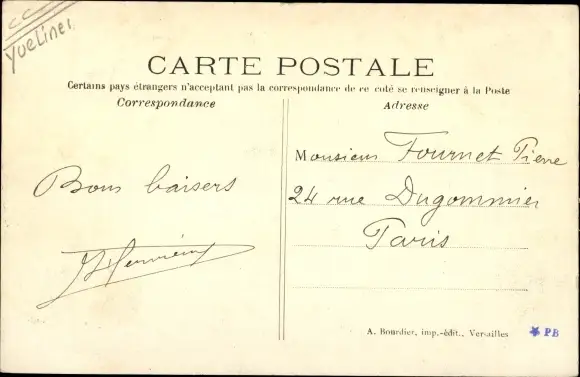 Yvelines
CARTE POSTALE
Certains pays étrangers n'acceptant pas la correspondance de ce coté se renseigner à la Poste
Correspondance
Bons baisers
Adresse
Monsieur Fournet Pierre
24 rue Dugommier
Paris
A. Bourdier, imp.-édit., Versailles
PB